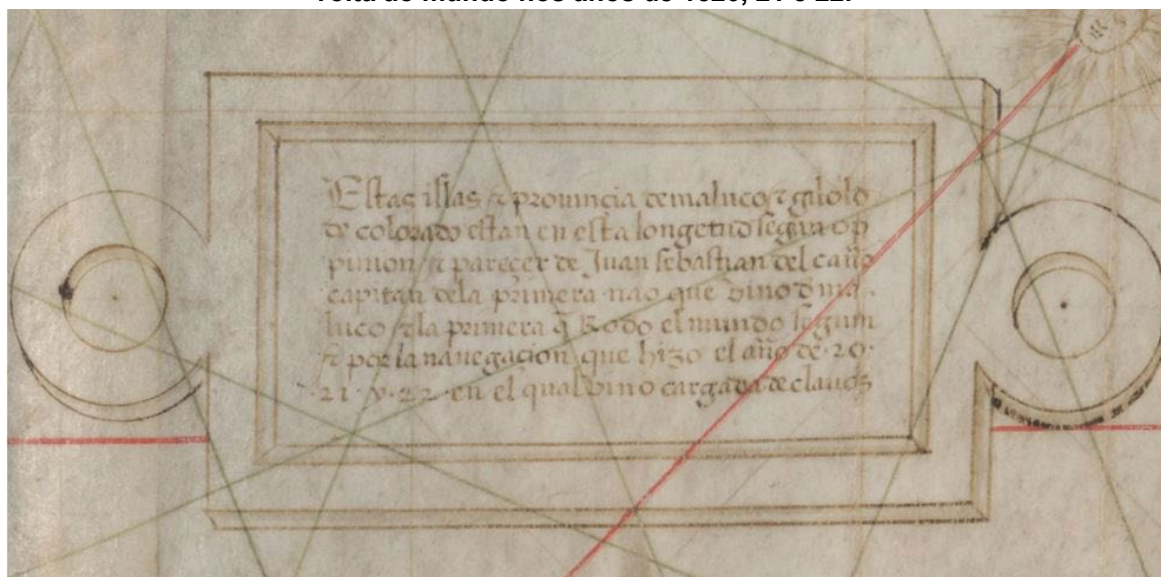 volta do mundo nos anos de 1520, 21 e 22.
Estas islas & prouincia de maluco & gilolo
de colorado estan en esta longetud segun op
pinion & pareçer de Juan sebastian del caño
capitan dela primera nao que vino d ma
luco & la primera q̃ Rodo el mundo segun
& por la nauegaçion que hizo el año de 20
21 y 22 en el qual vino cargada de clauos